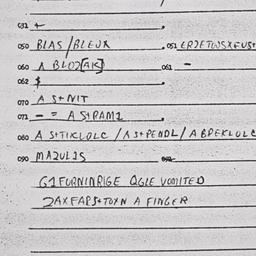 031 +
050 BLAS/BLEUX 051 ERZETWSXFUST
060 A BLOJ[AK] 061 -
062 $
070 A S+NIT
071 - = A S+RAM1
080 A S+TIKLOLC / A S+PENDL / A BPEKLOLC
090 MAZULIS 092
G1FORNINRIGE QGLE VOMITED
2AXFARS+TOXN A FINGER